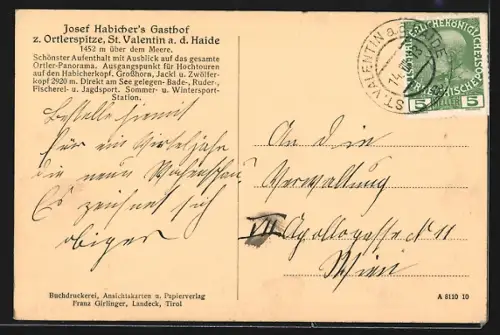 Josef Habicher's Gasthof
z. Ortlerspitze, St. Valentin a. d. Haide
1452 m über dem Meere.
Schönster Aufenthalt mit Ausblick auf das gesamte
Ortler-Panorama. Ausgangspunkt für Hochtouren
auf den Habicherkopf, Großhorn, Jackl u. Zwölfer-
kopf 2920 m. Direkt am See gelegen - Bade-, Ruder-,
Fischerei- u. Jagdsport. Sommer- u. Wintersport-
Station.
ST. VALENTIN a. d. HAIDE
14
5 HELLER 5
Bestelle hiemit
für ein Vierteljahr
die neun Wochenschau?
Es zeichnet sich
obiger
An die
Verwaltung
VII Apollogasse N 11
Wien
Buchdruckerei, Ansichtskarten u. Papierverlag
Franz Girlinger, Landeck, Tirol
A 8120 10